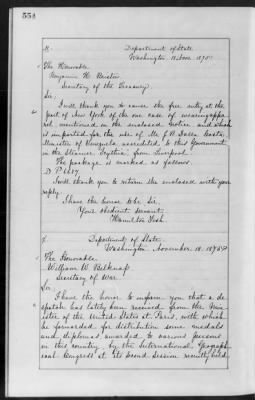 554
Department of State
Washington 18 Nov. 1875
The Honorable
Benjamin H. Bristow
Secretary of the Treasury
Sir,
I will thank you to cause the free entry at the
port of New York, of the one case of wearing appa-
rel, mentioned in the enclosed notice and which
is imported for the use of Mr. J. B. Dalla Costa,
Minister of Venezuela accredited to this Government
in the Steamer "Scythia" from Liverpool
The package is marked as follows.
D. P.
I will thank you to return the enclosed with your
reply.
I have the honor to be Sir,
Your obedient servant
Hamilton Fish.
Department of State,
Washington, November 18, 1875
The Honorable
William W. Belknap
Secretary of War.
Sir,
I have the honor to inform you that a de-
spatch has lately been received from the Min-
ister of the United States at Paris, with which
he forwarded for distribution some medals
and diplomas awarded to various persons
in this country, by the International Geograph-
ical Congress at its second session recently held,